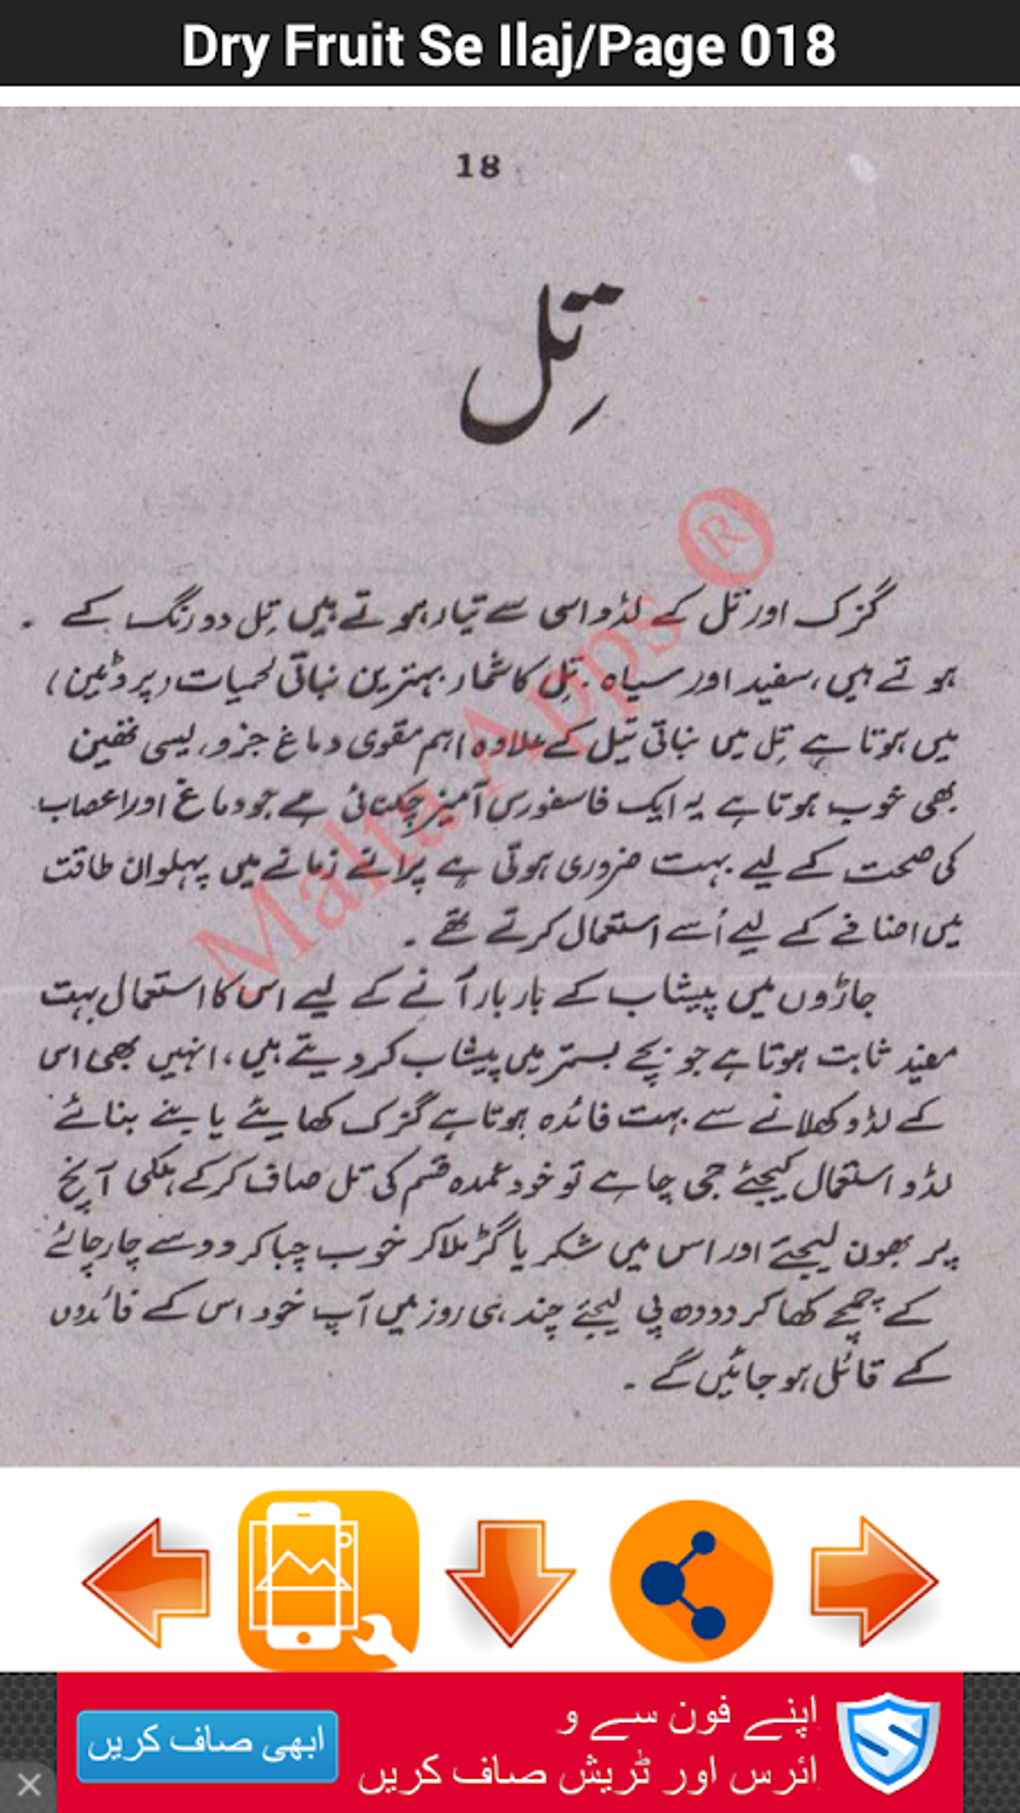 Dry Fruit Se Ilaj/Page 018
18
تِل
گزک اور تل کے لڈو اسی سے تیار ہوتے ہیں تِل دو رنگ کے
ہوتے ہیں، سفید اور سیاہ۔ تِل کا شمار بہترین نباتی لحمیات (پروٹین)
میں ہوتا ہے تِل میں نباتی تیل کے علاوہ اہم مقوی دماغ جزو، لیسی تھین
بھی خوب ہوتا ہے یہ ایک فاسفورس آمیز چکنائی ہے جو دماغ اور اعصاب
کی صحت کے لیے بہت ضروری ہوتی ہے پرانے زمانے میں پہلوان طاقت
میں اضافے کے لیے اُسے استعمال کرتے تھے۔
جاڑوں میں پیشاب کے بار بار آنے کے لیے اس کا استعمال بہت
مفید ثابت ہوتا ہے جو بچے بستر میں پیشاب کر دیتے ہیں، انہیں بھی اس
کے لڈو کھلانے سے بہت فائدہ ہوتا ہے گزک کھایئے یا بنے بنائے
لڈو استعمال کیجئے جی چاہے تو خود عمدہ قسم کی تل صاف کر کے ہلکی آنچ
پر بھون لیجئے اور اس میں شکر یا گڑ ملا کر خوب چبا کر دو سے چار چائے
کے چمچے کھا کر دودھ پی لیجئے چند ہی روز میں آپ خود اس کے فائدوں
کے قائل ہو جائیں گے۔
Malta Apps ®
اپنے فون سے و
ائرس اور ٹریش صاف کریں
ابھی صاف کریں